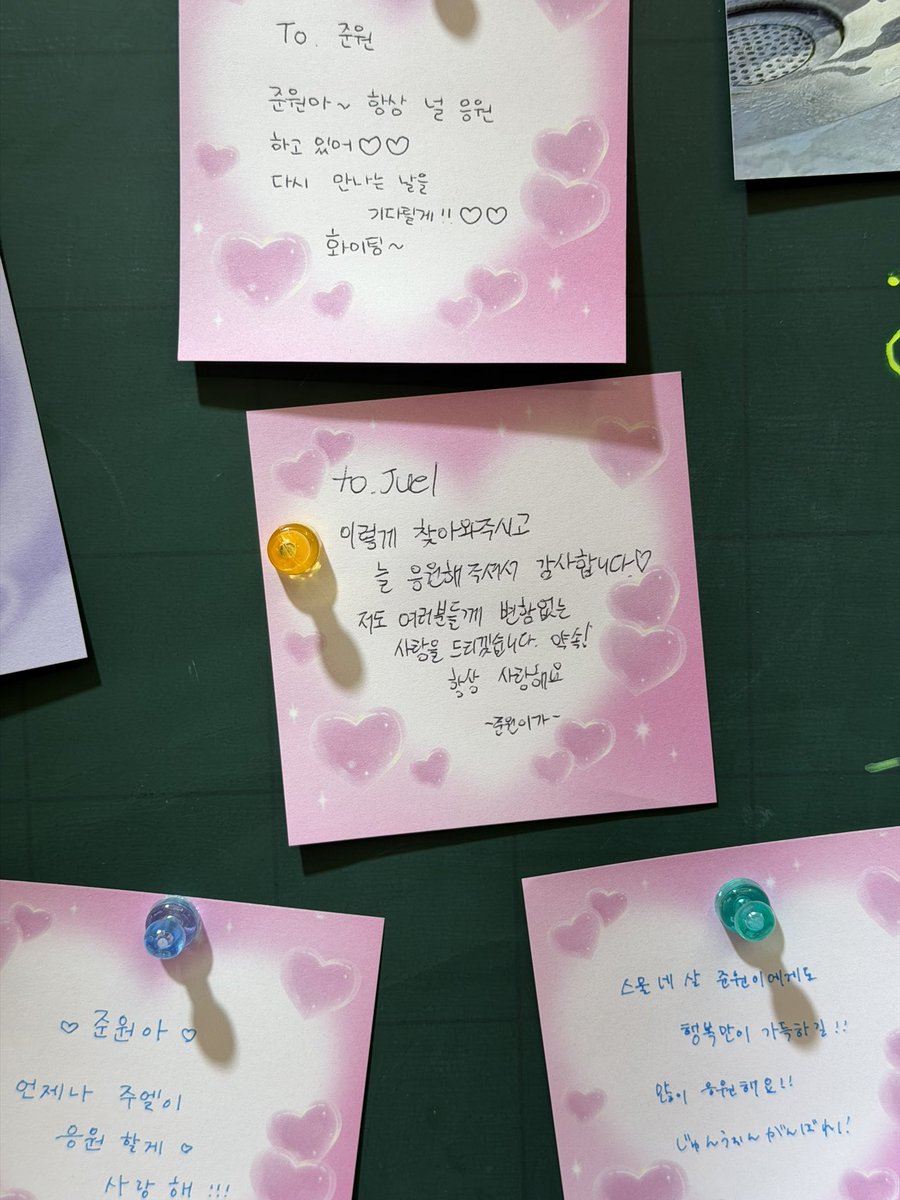 To. 준원
준원아~ 항상 널 응원
하고 있어♡♡
다시 만나는 날을
기다릴게!!♡♡
화이팅~
to. Juel
이렇게 찾아와주시고
늘 응원해주셔서 감사합니다.♡
저도 여러분들께 변함없는
사랑을 드리겠습니다. 약속!
항상 사랑해요
-준원이가-
♡준원아♡
언제나 주엘이
응원 할게♡
사랑해!!!
스물네 살 준원이에게도
행복만이 가득하길!!
많이 응원해요!!
じゅんうぉんがんばれ!